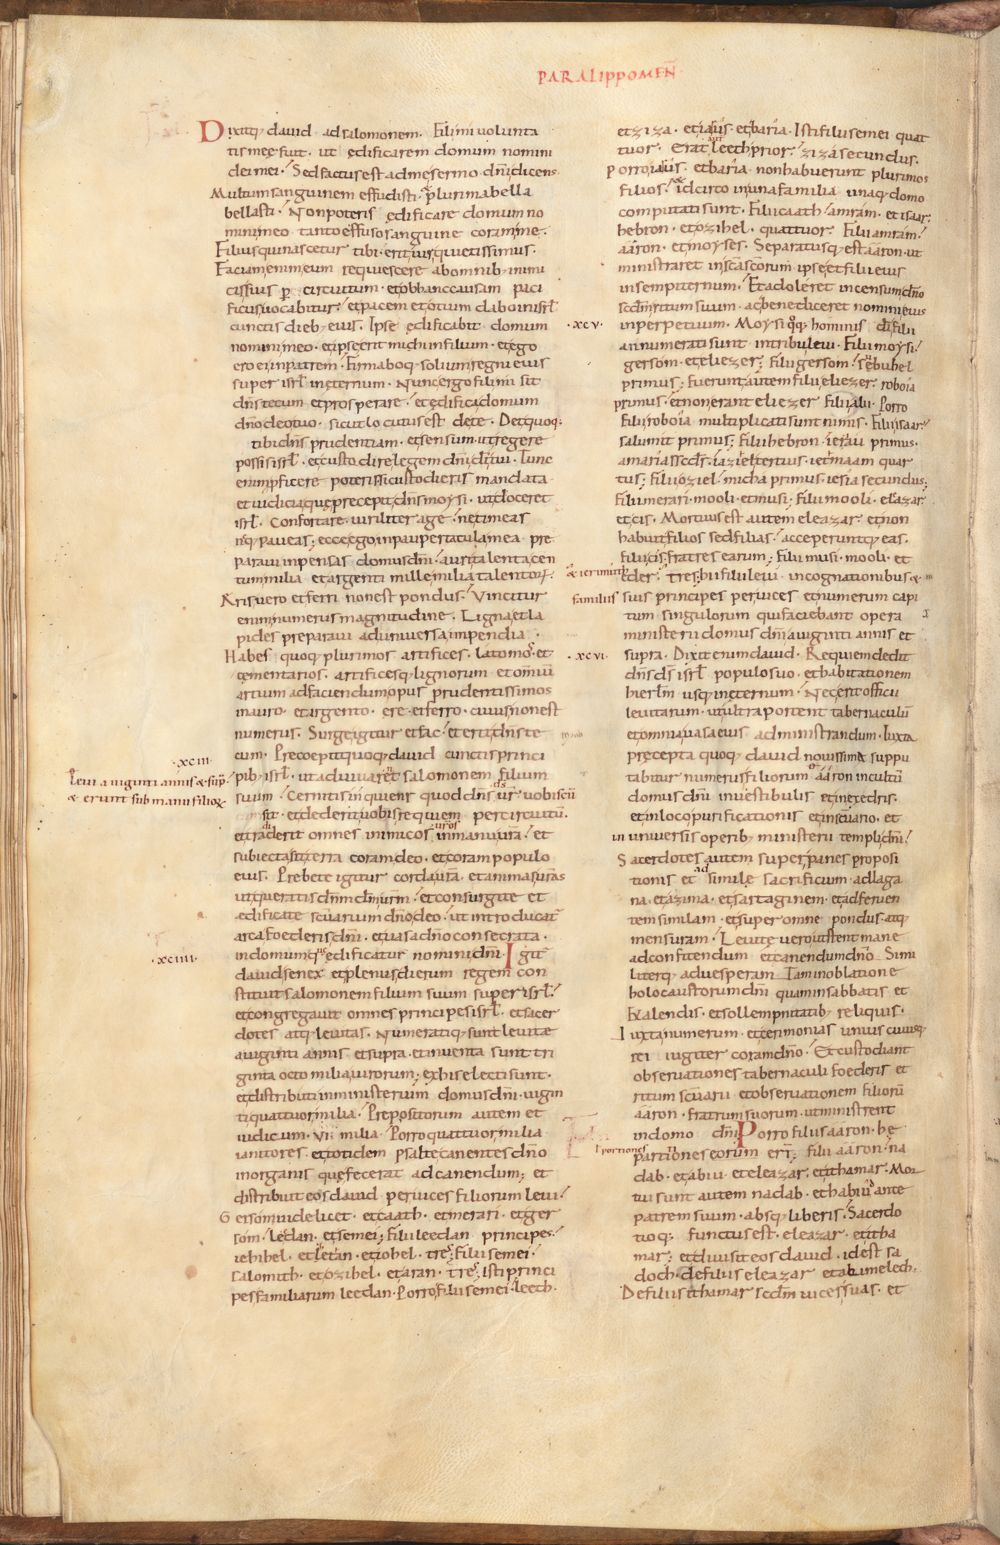 PARALIPPOMEN̄
Dixitq; dauid ad salomonem. Fili mi uolunta
tis meę fuit. ut ędificarem domum nomini
dei mei. Sed factus est ad me sermo dn̄i dicens.
Multum sanguinem effudisti. & plurima bella
bellasti. Non poteris ędificare domum no
mini meo. tanto effuso sanguine coram me.
Filius qui nascetur tibi. erit uir quietissimus.
Faciam enim eum requiescere ab omnib; inimi
cis suis p circuitum. et ob hanc causam paci
ficus uocabitur. et pacem et otium dabo in isrł
cunctis dieb; eius. Ipse ędificabit domum
nomini meo. et ipse erit mihi in filium. et ego
ero ei in patrem. Firmaboq; solium regni eius
super isrł in ęternum. Nunc ergo fili mi sit
dn̄s tecum et prosperare. et ędifica domum
dn̄o deo tuo. sicut locutus est de te. Det quoq;
tibi dn̄s prudentiam. et sensum. ut regere
possis isrł. et custodire legem dn̄i dī tui. Tunc
enim pficere poteris si custodieris mandata
et iudicia quę precepit dn̄s moysi. ut doceret
isrł. Confortare. uiriliter age. ne timeas
neq; paueas. ecce ego in paupertatula mea prę
paraui inpensas domus dn̄i. auri talenta cen
tum milia. et argenti mille milia talentorꝝ.
Aeris uero et ferri non est pondus. Vincitur
enim numerus magnitudine. Ligna et la
pides preparaui ad uniuersa impendia.
Habes quoq; plurimos artifices. latomos. et
cementarios. artificesq; lignorum. et omniū
artium ad faciendum opus prudentissimos
in auro. et argento. ere. et ferro. cuius non est
numerus. Surge igitur et fac. et erit dn̄s te
cum. Precoepit quoq; dauid cunctis princi
·xciii·
pib; isrł. ut adiuuarent salomonem filium
Leui a uiginti annis & sup̄
& erunt sub manu filioꝝ
suum. Cernitis inquiens quod dn̄s ds̄ ur̄ uobiscū
sit. et dederit uobis requiem per circuitū.
et tradiderit omnes inimicos uros in manu ura. et
subiecta sit terra coram deo. et coram populo
eius. Prebete igitur corda ura. et animas uras
ut queratis dn̄m dm̄ urm̄. et consurgite et
ędificate sc̄uarium dn̄o deo. ut introducat̄
arca foederis dn̄i. et uasa dn̄o consecrata.
in domum quę edificatur nomini dn̄i. Igit̄
·xciiii·
dauid senex et plenus dierum regem con
stituit salomonem filium suum super isrł.
et congregauit omnes principes isrł. et sacer
dotes atq; leuitas. Numeratiq; sunt leuitę
a uiginti annis et supra. et inuenta sunt tri
ginta octo milia uirorum. ex his electi sunt.
et distributi in ministerium domus dn̄i. uigin
ti quattuor milia. Prepositorum autem et
iudicum. vi milia. Porro quattuor milia
ianitores. et totidem psaltę canentes dn̄o
in organis quę fecerat ad canendum. et
distribuit eos dauid per uices filiorum leui.
Gersom uidelicet. et caath. et merari. et ger
som. leedan. et semei. Filii leedan principes.
iehihel. et zetan. et iohel. tres. Filii semei.
salomith. et ozihel. et aran. tres. Isti princi
pes familiarum leedan. Porro filii semei. leeth.
et ziza. et iaus. et baria. Isti filii semei quat
tuor. Erat leeth prior. ziza secundus.
Porro iaus. et baria non habuerunt plurimos
filios. idcirco in una familia unaq; domo
computati sunt. Filii caath. amram. et isaar.
hebron. et ozihel. quattuor. Filii amram.
aaron. et moyses. Separatusq; est aaron. ut
ministraret in sc̄a sc̄orum. ipse et filii eius
in sempiternum. Et adoleret incensum dn̄o
scdm̄ ritum suum. ac benediceret nomini eius
·xcv·
in perpetuum. Moysi quoq; hominis dī filii
annumerati sunt in tribu leui. Filii moysi.
gersom. et eliezer. Filii gersom. sebuhel
primus. fuerunt autem filii eliezer. roboia
primus. et non erant eliezer filii alii. Porro
filii roboia multiplicati sunt nimis. Filii isaar.
salumit primus. Filii hebron. ieriau primus.
amarias scds̄. iaziel tertius. iecmaam quar
tus. filii oziel. micha primus. iesia secundus.
Filii merari. mooli. et musi. Filii mooli. eleazar.
et cis. Mortuus est autem eleazar. et non
habuit filios sed filias. acceperuntq; eas.
filii cis fratres earum. Filii musi. mooli. et
eder. & ierimuth tres. hii filii leui. in cognationibus &
familiis suis principes per uices et numerum capi
tum singulorum qui faciebant opera
ministerii domus dn̄i a uiginti annis et
·xcvi·
supra. Dixit enim dauid. Requiem dedit
dn̄s ds̄ isrł populo suo. et habitationem
hierłm usq; in ęternum. Nec erit officii
leuitarum. ut ultra portent tabernaculū
et omnia uasa eius ad ministrandum. Iuxta
precepta quoq; dauid nouissima suppu
tabitur numerus filiorum aaron in cultum
domus dn̄i in uestibulis et in exedris.
et in loco purificationis et in sc̄uario. et
in uniuersis operib; ministerii templi dn̄i.
Sacerdotes autem super panes proposi
tionis et ad simile sacrificium. ad laga
na. et azima. et sartaginem. et ad feruen
tem similam. et super omne pondus. atq;
mensuram. Leuitę uero ut stent mane
ad confitendum et canendum dn̄o. Simi
literq; ad uesperam. Tam in oblatione
holocaustorum dn̄i quam in sabbatis et
kalendis. et sollempnitatib; reliquis.
Iuxta numerum. et cerimonias unius cuiusq;
rei iugiter coram dn̄o. Et custodiant
obseruationes tabernaculi foederis et
ritum sc̄uarii et obseruationem filiorū
aaron. fratrum suorum. ut ministrent
in domo dn̄i. Porro filiis aaron. hę
ł portiones
partitiones eorum er̄t. filii aaron. na
dab. et abiu. et eleazar. et ithamar. Mor
tui sunt autem nadab. et habiu ante
patrem suum. absq; liberis. Sacerdo
tioq; functus est. eleazar. et itha
mar. et diuisit eos dauid. id est sa
doch. de filiis eleazar et ahimelech.
De filiis ithamar scdm̄ uices suas. et